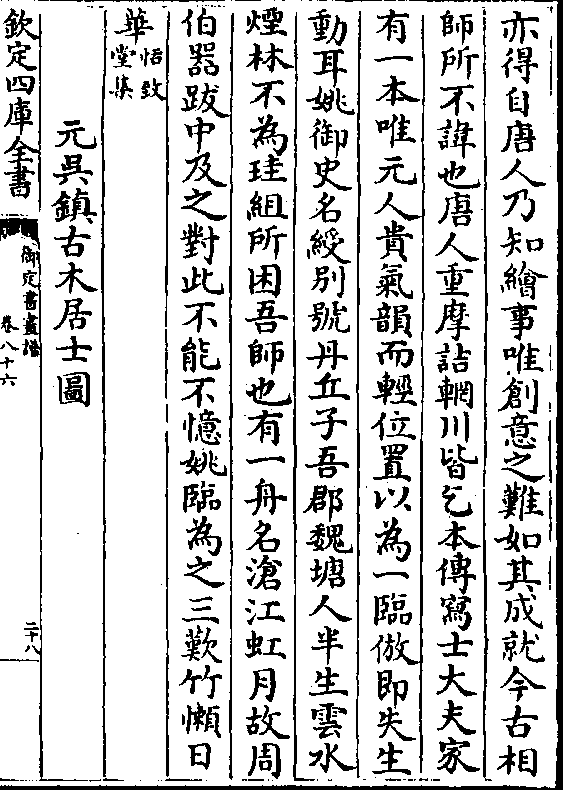 亦得自唐人乃知繪事唯創意之難如其成就今古相
師所不諱也唐人重摩詰輞川皆乞本傳寫士大夫家
有一本唯元人貴氣韻而輕位置以為一臨倣即失生
動耳姚御史名綬別號丹丘子吾郡魏塘人半生雲水
煙林不為珪組所困吾師也有一舟名滄江虹月故周
伯器跋中及之對此不能不憶姚臨為之三歎竹懶日
華恬致
堂集
元吳鎮古木居士圖
欽定四庫全書
御定書畫譜
卷八十六
二十八